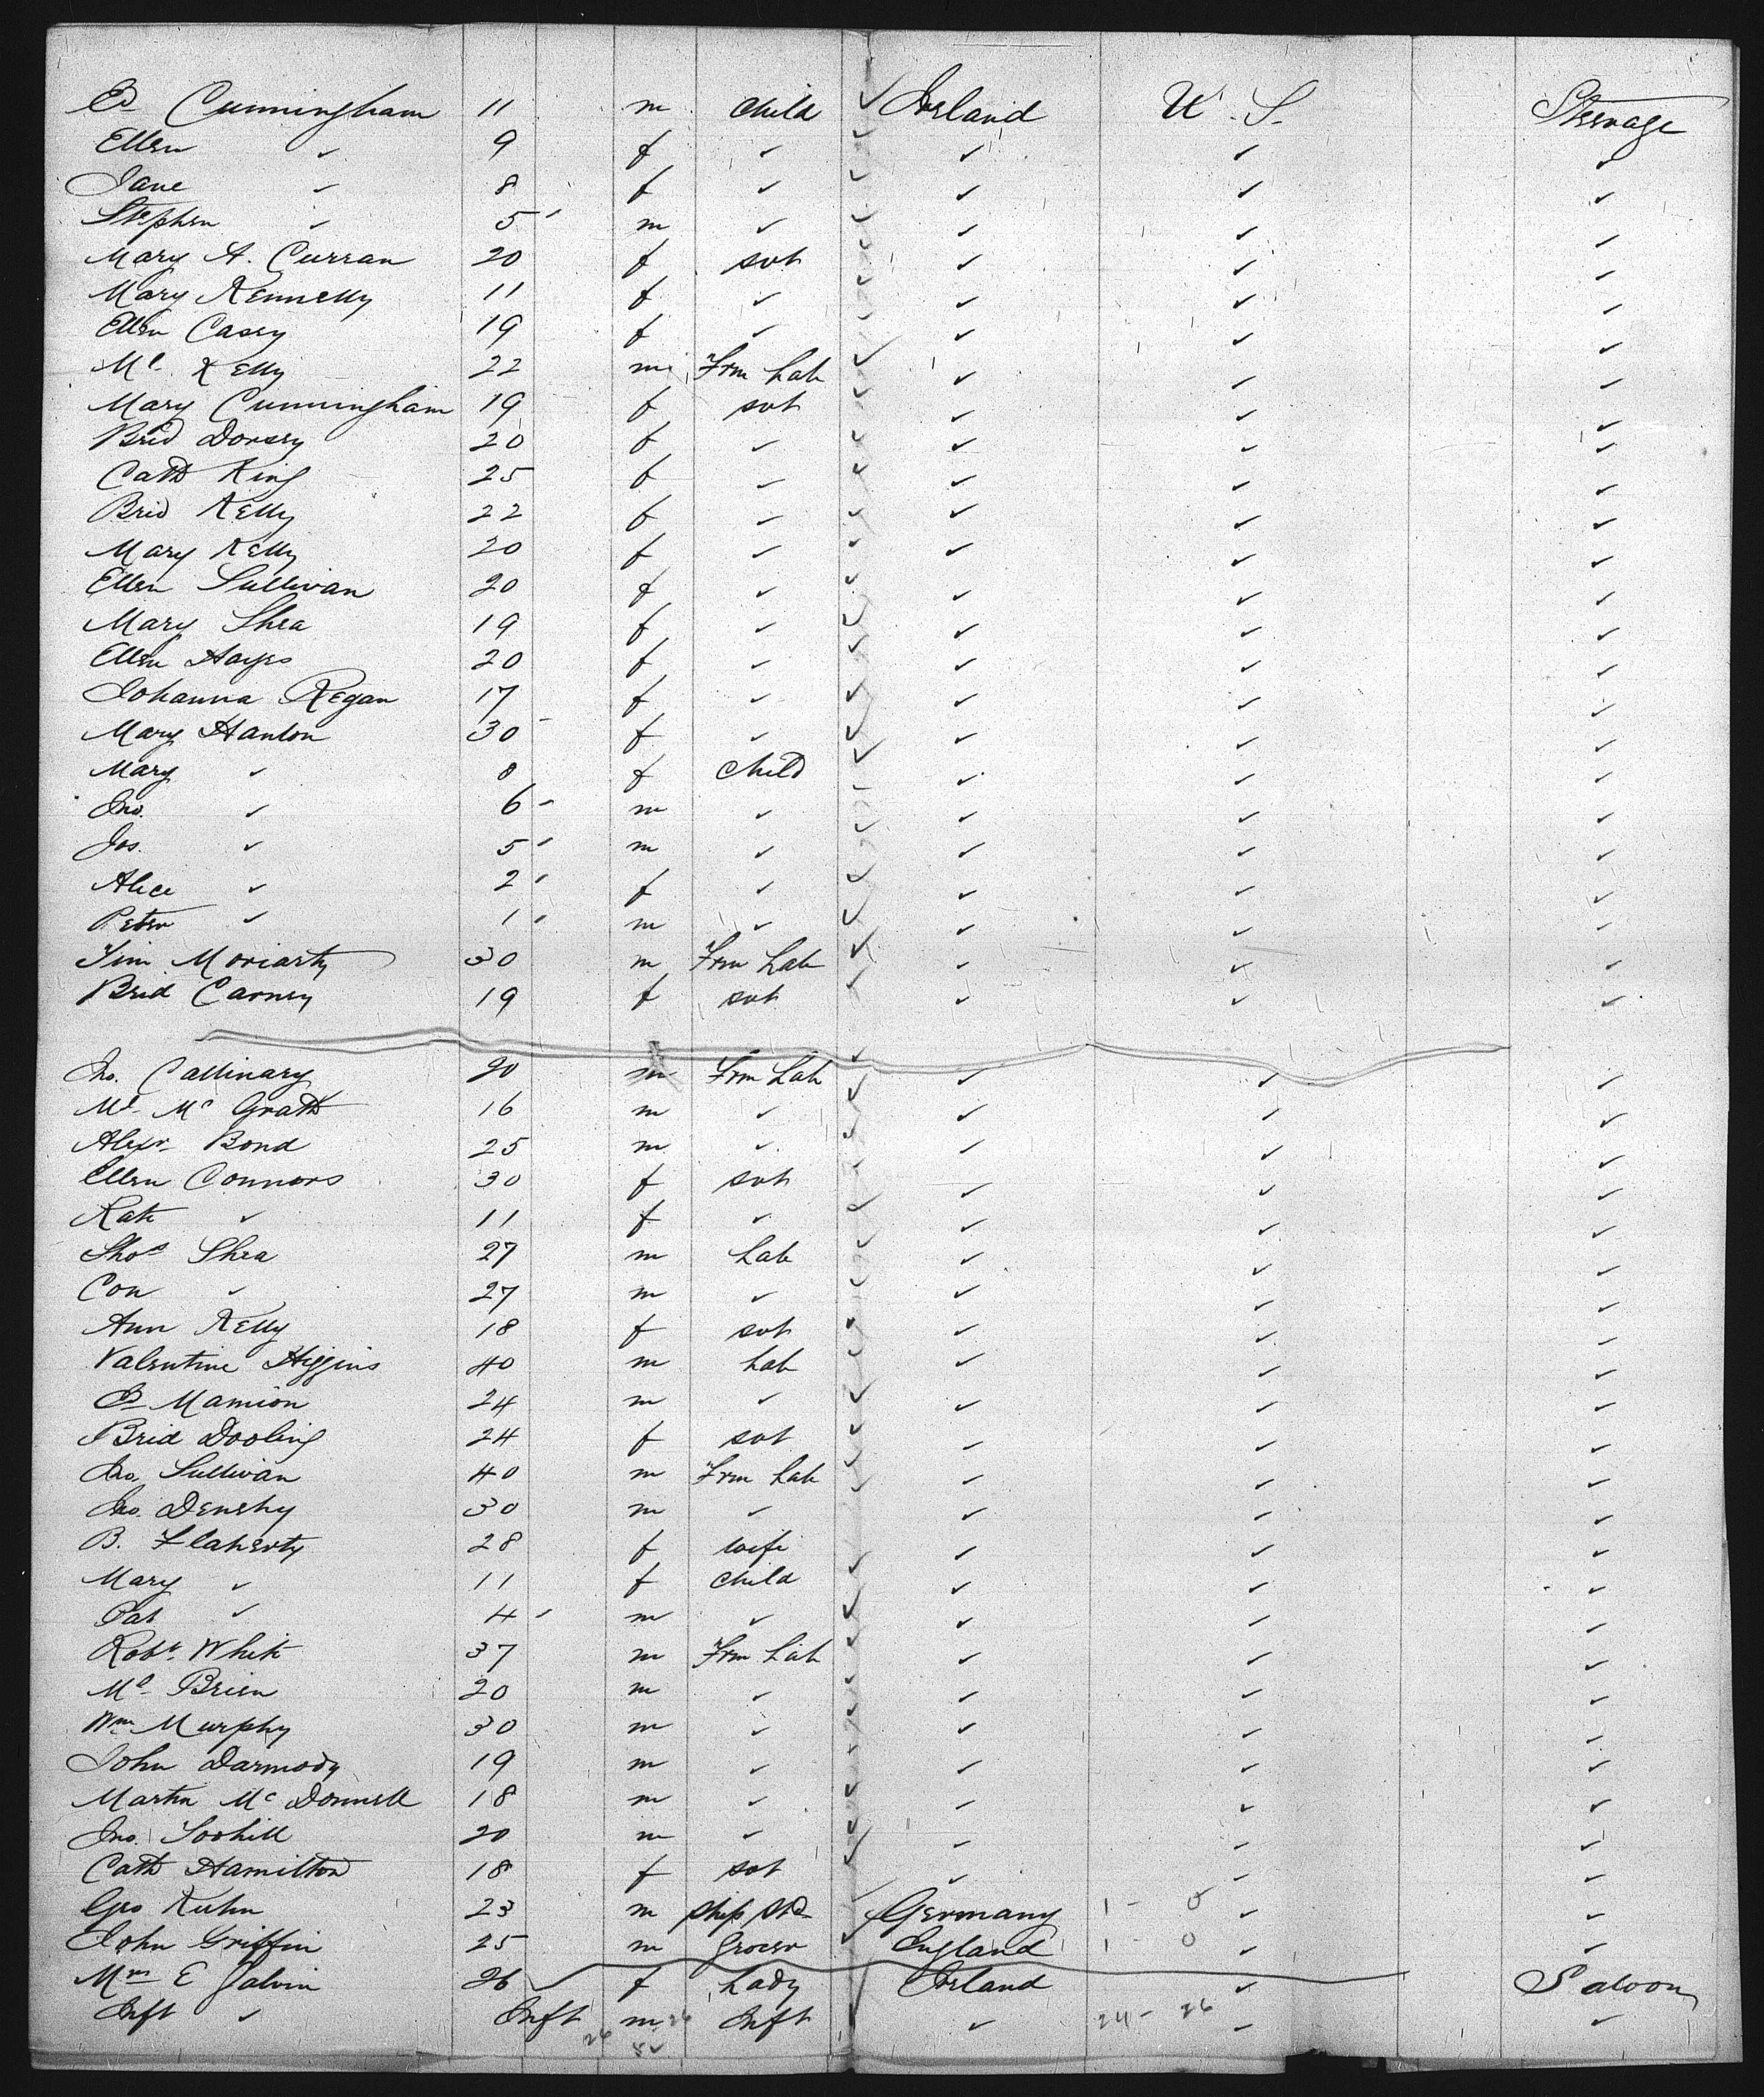 Ed Cunningham 11 m child ✓ Ireland U.S. Steerage
Ellen ✓ 9 f ✓ ✓ ✓ ✓ ✓
Jane ✓ 8 f ✓ ✓ ✓ ✓ ✓
Stephen ✓ 5 m ✓ ✓ ✓ ✓ ✓
Mary A. Curran 20 f svt ✓ ✓ ✓ ✓
Mary Kennelly 11 f ✓ ✓ ✓ ✓ ✓
Ellen Casey 19 f ✓ ✓ ✓ ✓ ✓
Ml Kelly 22 m Frm Lab ✓ ✓ ✓ ✓
Mary Cunningham 19 f svt ✓ ✓ ✓ ✓
Brid Dorsey 20 f ✓ ✓ ✓ ✓ ✓
Cath King 25 f ✓ ✓ ✓ ✓ ✓
Brid Kelly 22 f ✓ ✓ ✓ ✓ ✓
Mary Kelly 20 f ✓ ✓ ✓ ✓ ✓
Ellen Sullivan 20 f ✓ ✓ ✓ ✓ ✓
Mary Shea 19 f ✓ ✓ ✓ ✓ ✓
Ellen Hayes 20 f ✓ ✓ ✓ ✓ ✓
Johanna Regan 17 f ✓ ✓ ✓ ✓ ✓
Mary Hanlon 30 f ✓ ✓ ✓ ✓ ✓
Mary ✓ 8 f child ✓ ✓ ✓ ✓
Jno. ✓ 6 m ✓ ✓ ✓ ✓ ✓
Jos. ✓ 5 m ✓ ✓ ✓ ✓ ✓
Alice ✓ 2 f ✓ ✓ ✓ ✓ ✓
Peter ✓ 1 m ✓ ✓ ✓ ✓ ✓
Tim Moriarty 30 m Frm Lab ✓ ✓ ✓ ✓
Brid Carney 19 f svt ✓ ✓ ✓ ✓
Jno. Callinary 20 m Frm Lab ✓ ✓ ✓ ✓
Ml Mc Grath 16 m ✓ ✓ ✓ ✓ ✓
Alexr Bond 25 m ✓ ✓ ✓ ✓ ✓
Ellen Connors 30 f svt ✓ ✓ ✓ ✓
Kate ✓ 11 f ✓ ✓ ✓ ✓ ✓
Thos Shea 27 m Lab ✓ ✓ ✓ ✓
Con ✓ 27 m ✓ ✓ ✓ ✓ ✓
Ann Kelly 18 f svt ✓ ✓ ✓ ✓
Valentine Higgins 40 m Lab ✓ ✓ ✓ ✓
Mannion 24 m ✓ ✓ ✓ ✓ ✓
Brid Dooling 24 f svt ✓ ✓ ✓ ✓
Jno. Sullivan 40 m Frm Lab ✓ ✓ ✓ ✓
Jno. Denehy 30 m ✓ ✓ ✓ ✓
B. Flaherty 28 f wife ✓ ✓ ✓
Mary ✓ 11 f child ✓ ✓ ✓ ✓
Pat ✓ 4 m ✓ ✓ ✓ ✓ ✓
Robt White 37 m Frm Lab ✓ ✓ ✓ ✓
Ml Brien 20 m ✓ ✓ ✓ ✓ ✓
Wm Murphy 30 m ✓ ✓ ✓ ✓ ✓
John Darmody 19 m ✓ ✓ ✓ ✓ ✓
Martin Mc Donnell 18 m ✓ ✓ ✓ ✓ ✓
Jno. Toohill 20 m ✓ ✓ ✓ ✓ ✓
Cath Hamilton 18 f svt ✓ ✓ ✓ ✓
Geo Kuhn 23 m ship ✓ Germany 1 - 0 ✓ ✓
John Griffin 25 m Grocer ✓ England 1 - 0 ✓ ✓
Mrs E Galvin 26 f Lady Ireland ✓ Saloon
Inft ✓ Inft m 26 Inft ✓ 24 - 26 ✓ ✓
26